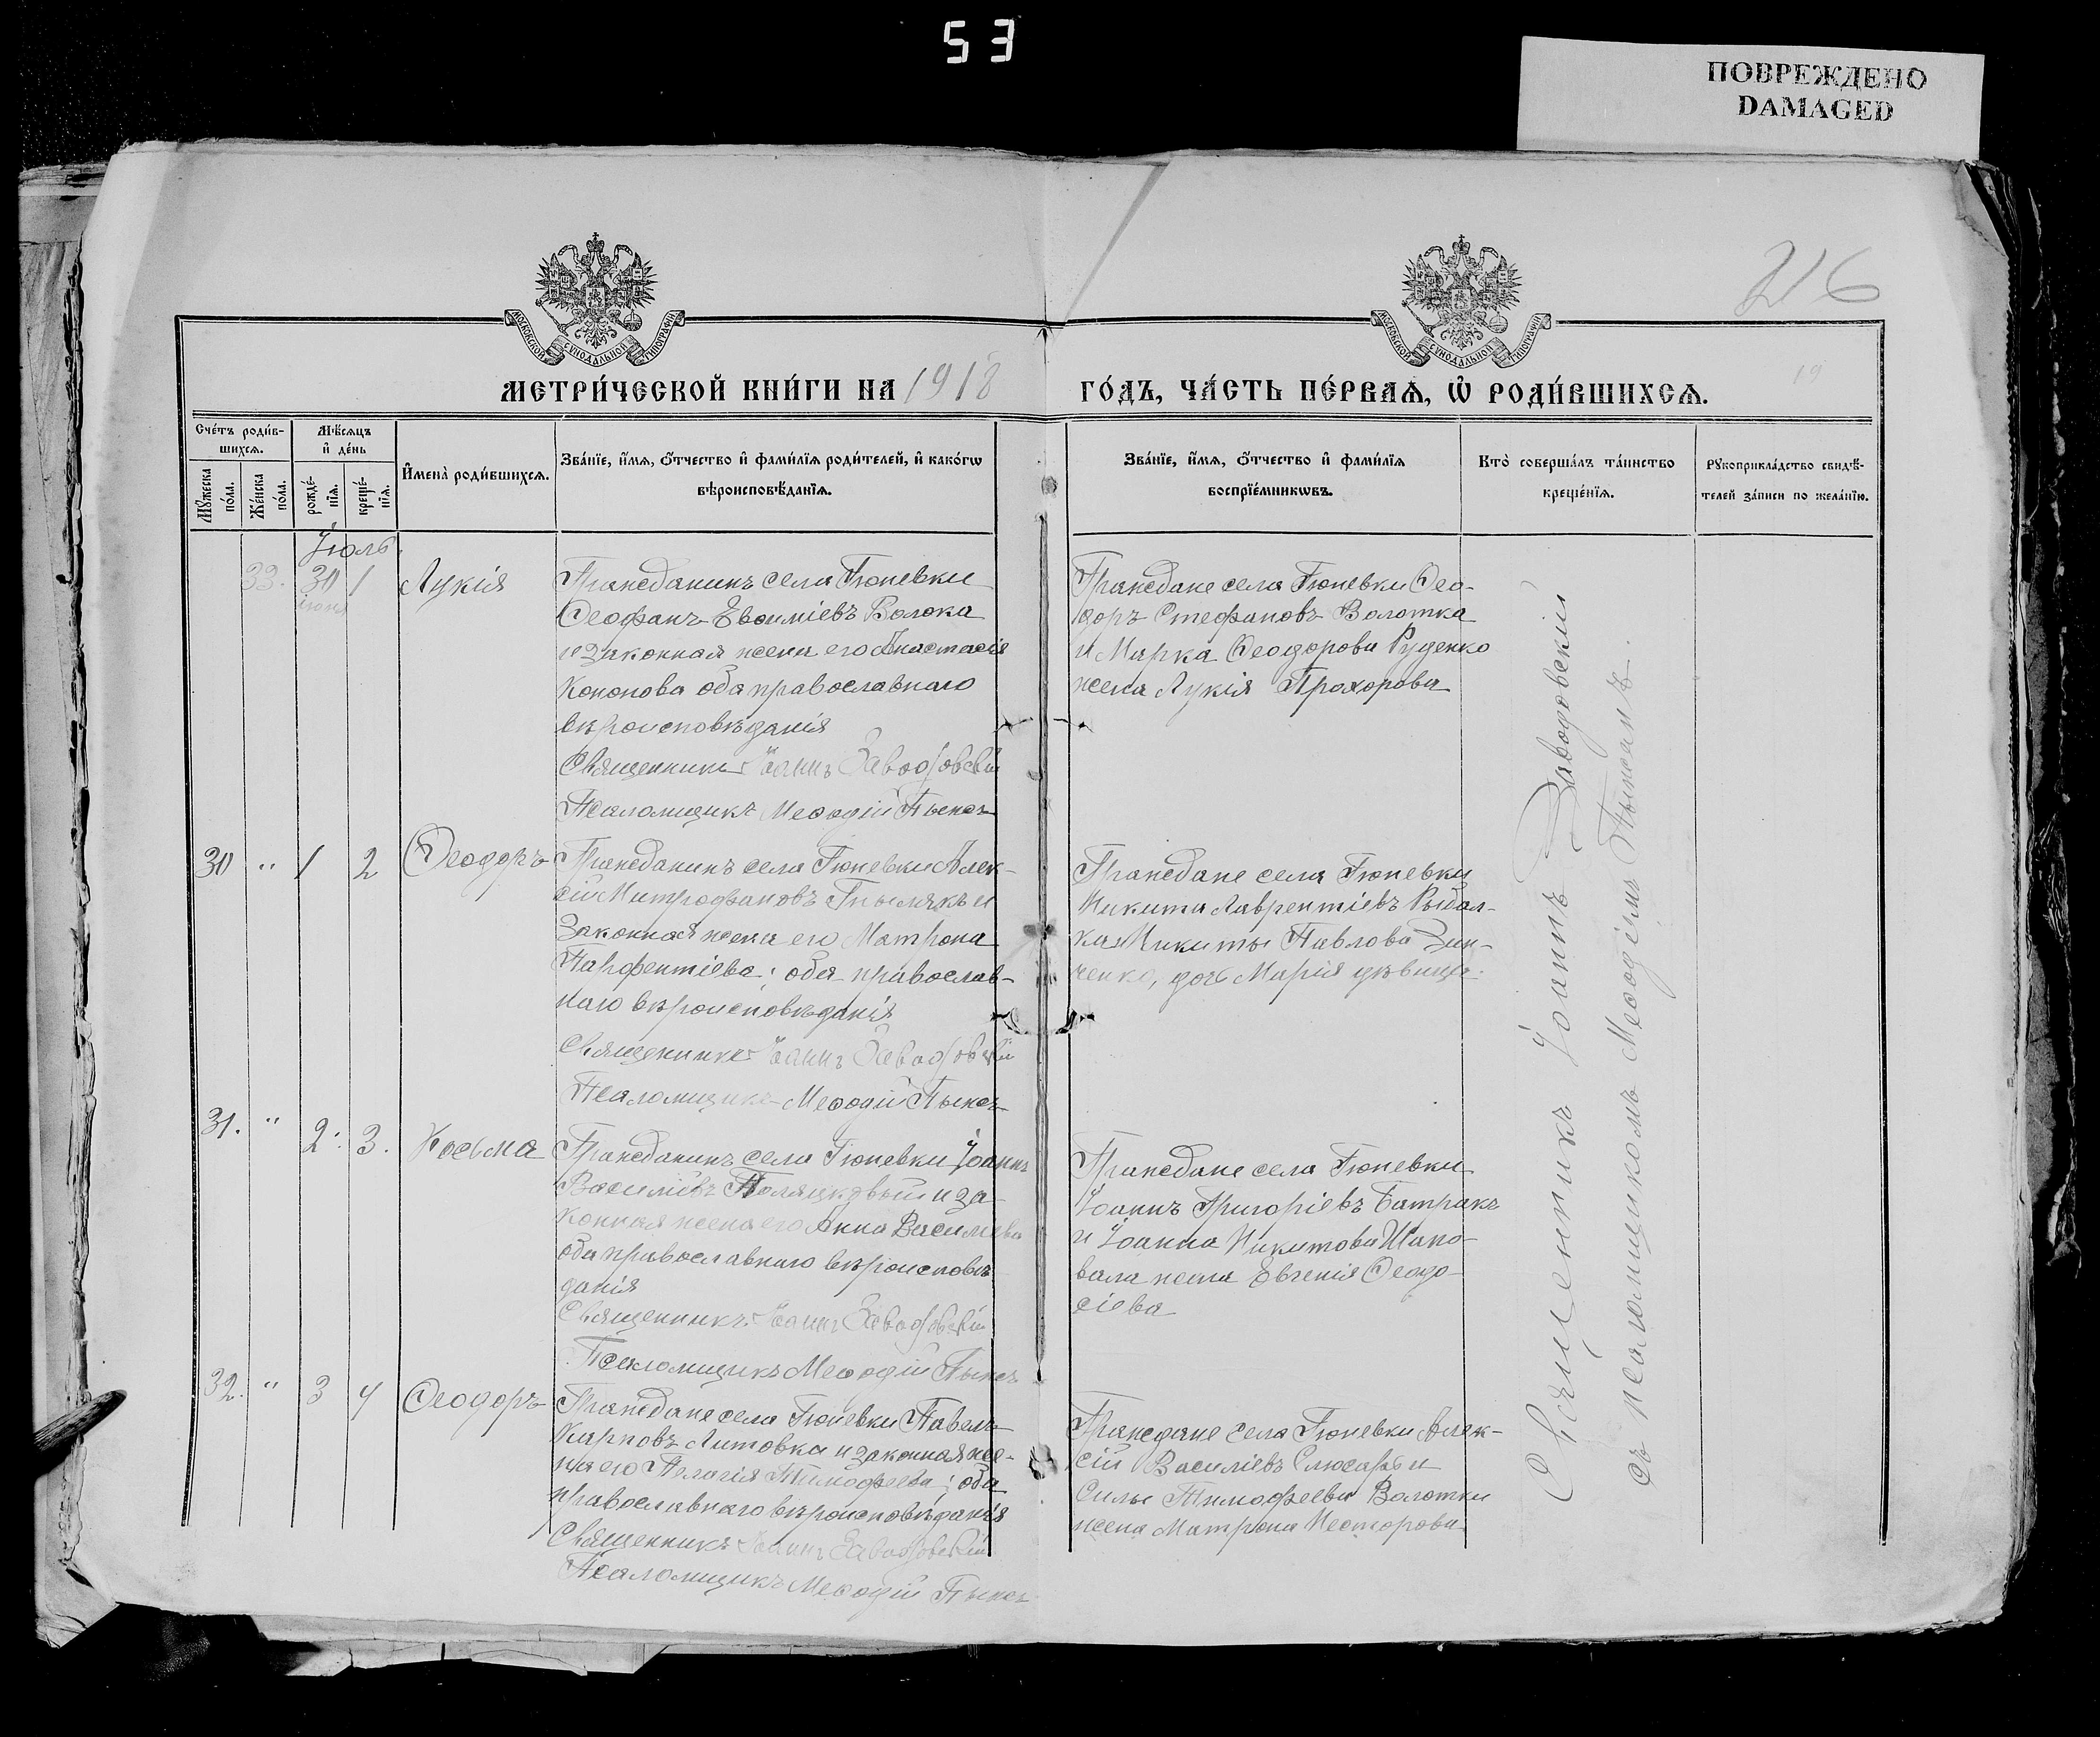 53
ПОВРЕЖДЕНО
DAMAGED
216
МОСКОВСКОЙ СѴНОДАЛЬНОЙ ТИПОГРАФІИ
МОСКОВСКОЙ СѴНОДАЛЬНОЙ ТИПОГРАФІИ
МЕТРИ́ЧЕСКОЙ КНИ́ГИ НА 1918 ГО́ДЪ, ЧА́СТЬ ПЕ́РВАѦ, Ѡ҆ РОДИ́ВШИХСѦ.
19
Сче́тъ роди́в-
шихсѧ.
Мѣ́сѧцъ
и҆ де́нь
Мꙋ́жеска по́ла.
Же́нска по́ла.
рожде́-
нїѧ.
креще́-
нїѧ.
И҆мена̀ роди́вшихсѧ.
Зва́нїе, и҆́мѧ, ѻ҆́тчество и҆ фами́лїѧ роди́телей, и҆ како́гѡ
вѣроисповѣ́данїѧ.
Зва́нїе, и҆́мѧ, ѻ҆́тчество и҆ фами́лїѧ
воспрїе́мникѡвъ.
Кто̀ соверша́лъ та́инство
креще́нїѧ.
Рꙋкоприкла́дство свидѣ́-
телей за́писи по жела́нїю.
Іюль.
33. 30 1 Лукія
іюня
Гражданинъ села Гюневки
Ѳеофанъ Евѳиміевъ Волока
и законная жена его Анастасія
Кононова оба православнаго
вѣроисповѣданія
Священникъ Іоаннъ Заводовскій
Псаломщикъ Меѳодій Пыжов
Граждане села Гюневки Ѳео-
доръ Стефановъ Волотка
и Марка Ѳеодорова Руденко
жена Лукія Прохорова
30 " 1 2 Ѳеодоръ
Гражданинъ села Гюневки Алек-
сій Митрофановъ и
законная жена его Матрона
Парфентіева; оба православ-
наго вѣроисповѣданія
Священникъ Іоаннъ Заводовскій
Псаломщикъ Меѳодій
Граждане села Гюневки
Никита Лаврентіевъ Рыбал-
ка и Никиты Павлова Зин-
ченко, дочь Марія дѣвица.
31. " 2. 3. Косьма
Гражданинъ села Гюневки Іоаннъ
Василіевъ и за-
конная жена его Анна Василіева
оба православнаго вѣроисповѣ-
данія
Священникъ Іоаннъ Заводовскій
Псаломщикъ Меѳодій
Граждане села Гюневки
Іоаннъ Григоріевъ Батракъ
и Іоанна Никитова Шапо-
вала жена Евгенія Ѳеодо-
сіева
32. " 3 4 Ѳеодоръ
Граждане села Гюневки Павелъ
Карповъ Литовка и законная же-
на его Пелагія Тимофеева; оба
православнаго вѣроисповѣданія
Священникъ Іоаннъ Заводовскій
Псаломщикъ Меѳодій
Граждане села Гюневки Алек-
сій Василіевъ Слюсарь и
Силы Тимофеева Волотки
жена Матрона Несторова
Священникъ Іоаннъ Заводовскій
съ псаломщикомъ Меѳодіемъ